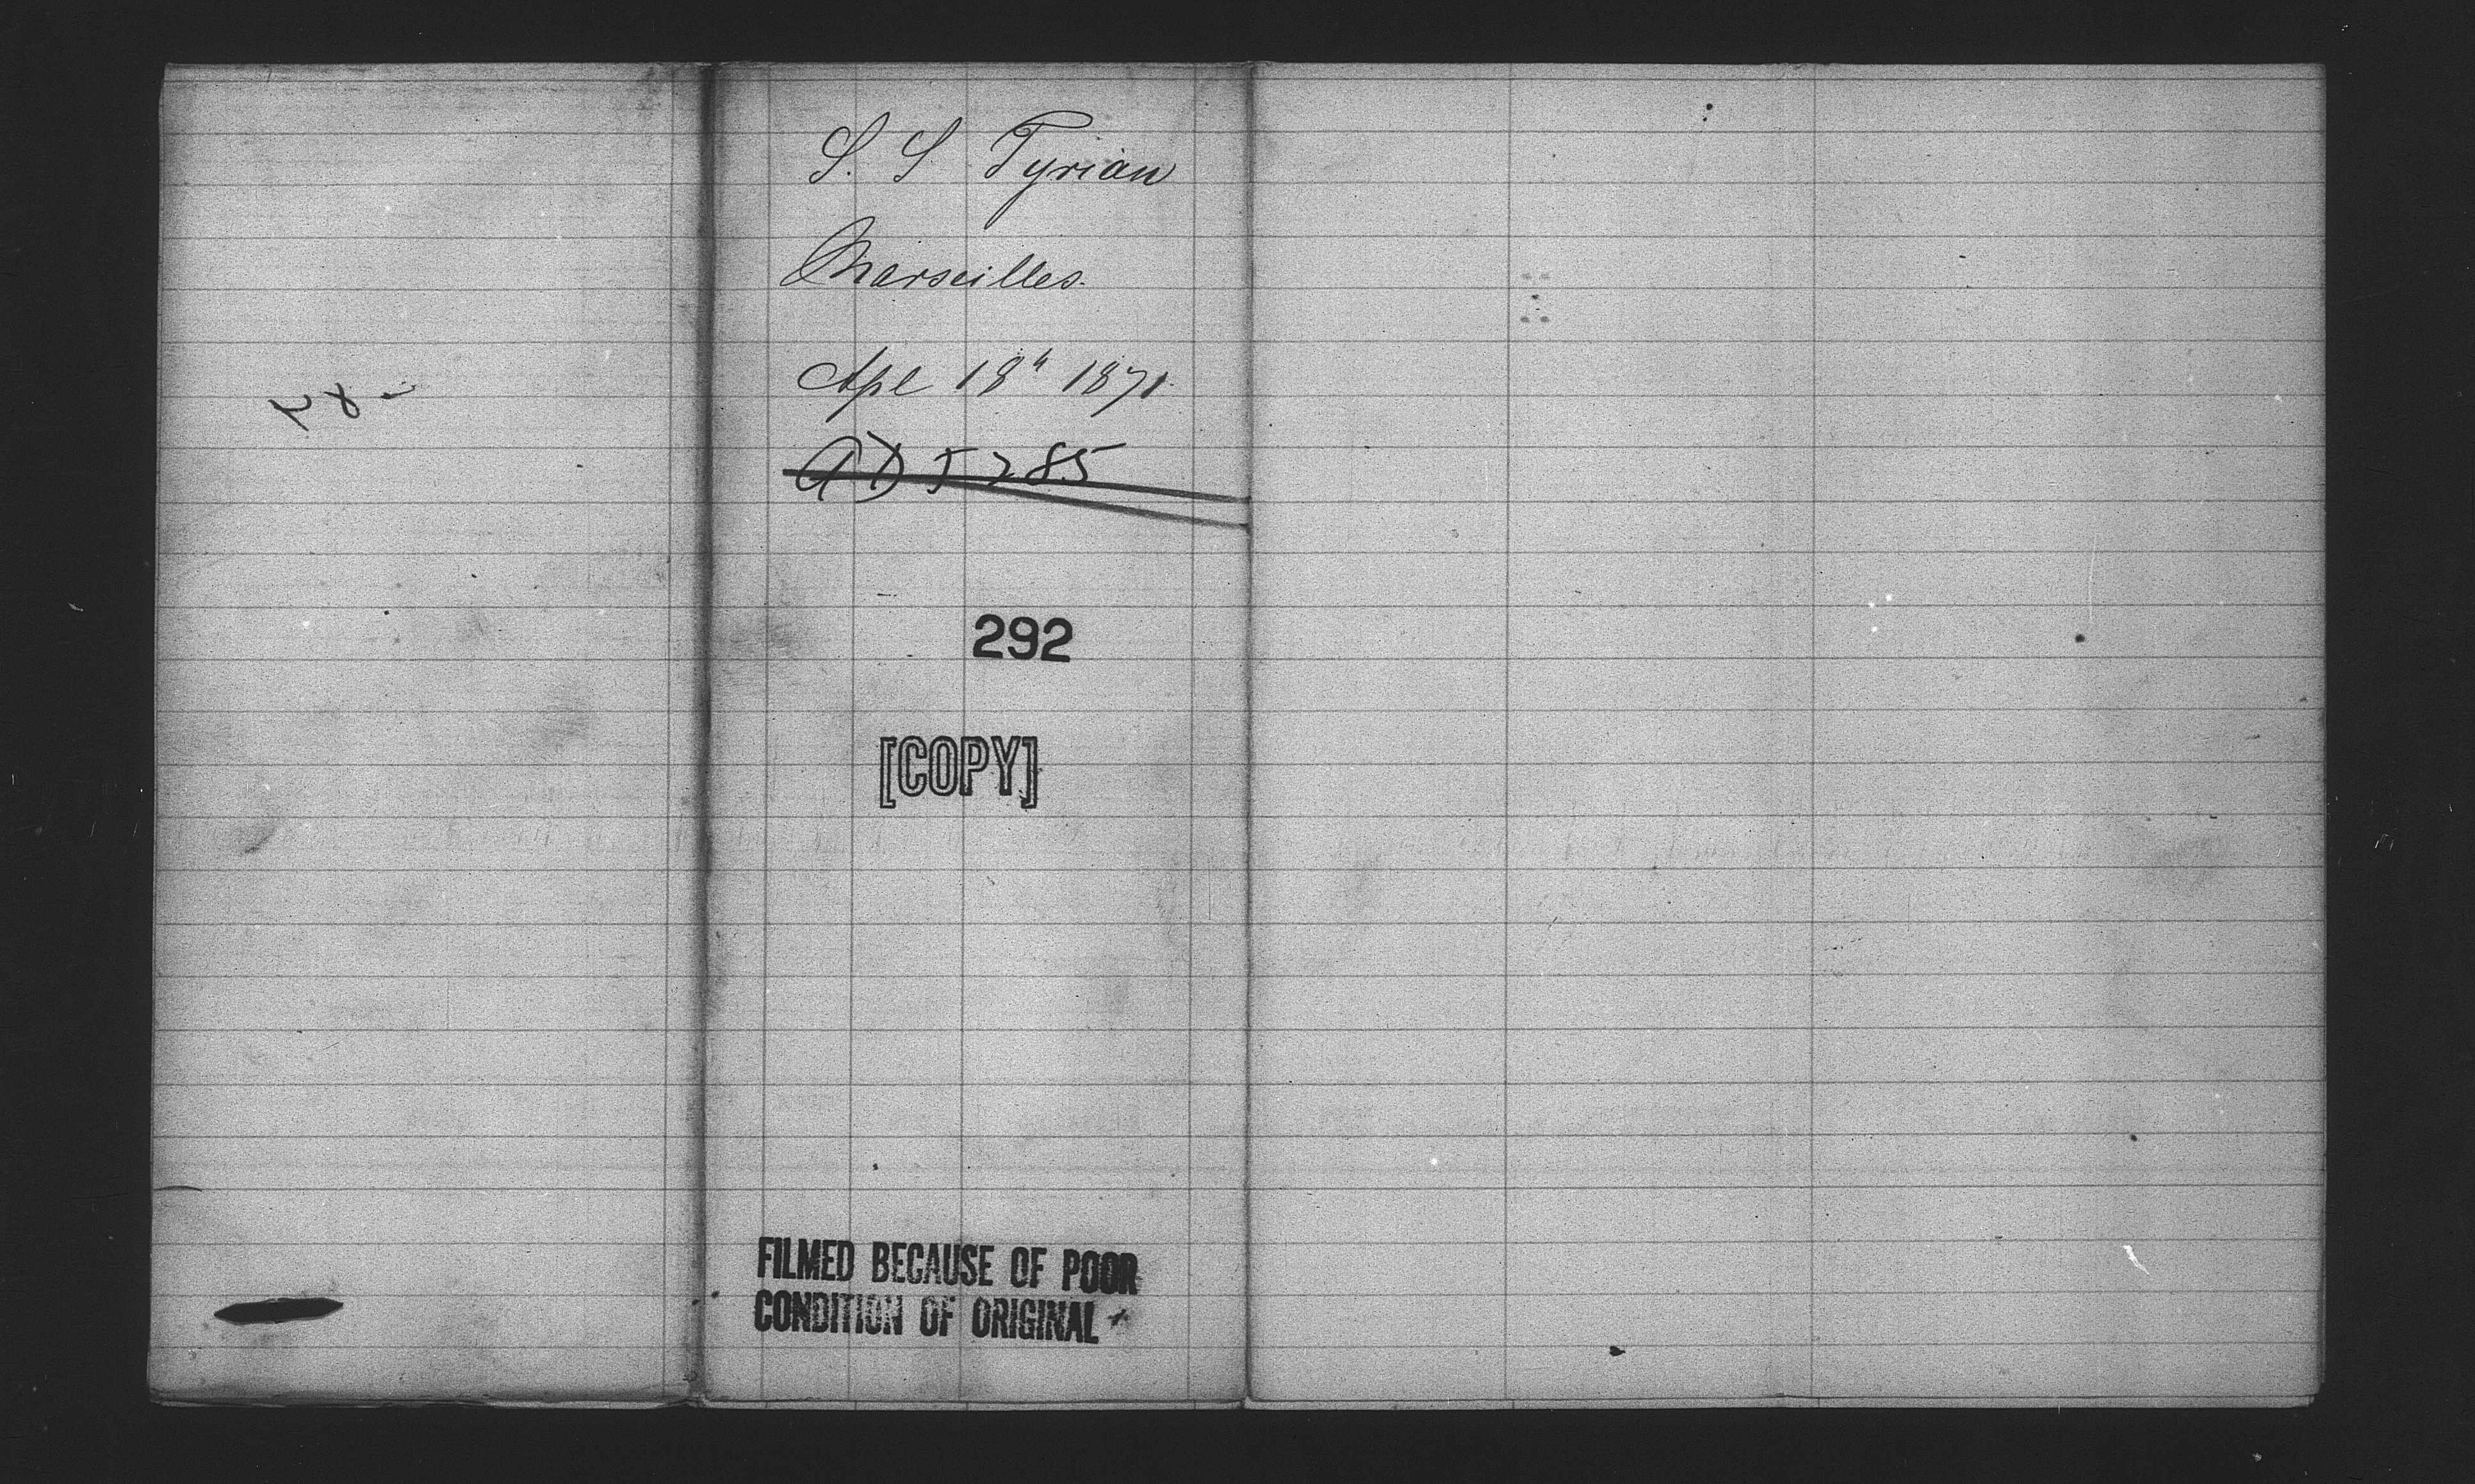 S. S Tyrian
Marseilles.
Apl 18h 1871.
292
[COPY]
FILMED BECAUSE OF POOR
CONDITION OF ORIGINAL